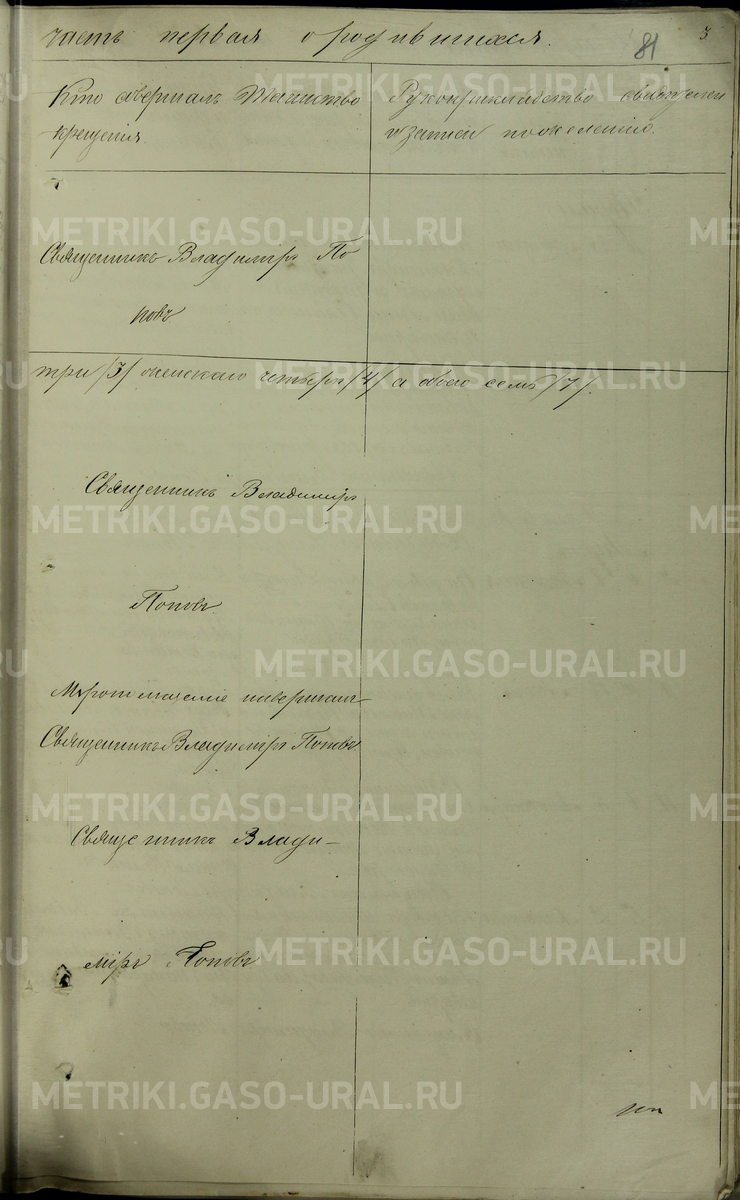 часть первая о родившихся.
81
3
Кто совершалъ Таинство
крещенія.
Рукоприкладство свидѣтелей
о записи по желанію.
Священникъ Владиміръ По
повъ
три /3/ женскаго четыре /4/ а обоего семь /7/.
Священникъ Владиміръ
Поповъ
Мѵропомазаніе совершалъ
Священникъ Владиміръ Поповъ
Священникъ Влади-
міръ Поповъ
METRIKI.GASO-URAL.RU